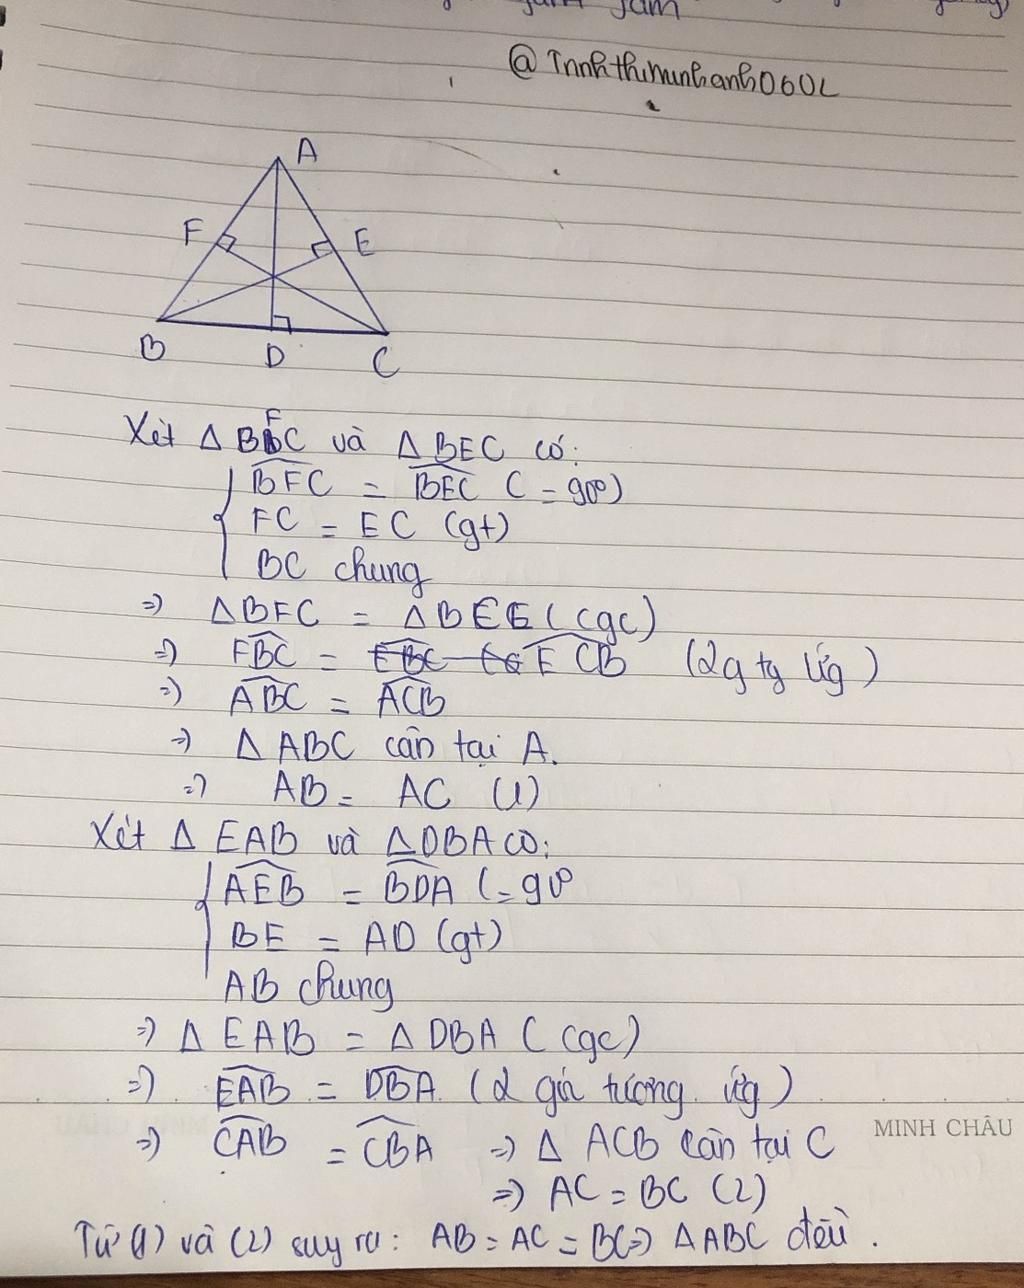 @Trinhthiminhanh060L
A
F
E
B
D
C
Xét Δ BFC và Δ BEC có:
BFC = BEC ( = 90º)
FC = EC (gt)
BC chung
=) ΔBFC = ΔBEE (cgc)
=) FBC = ECB (2g tg ứg)
=) ABC = ACB
=) Δ ABC cân tại A.
=) AB = AC (1)
Xét Δ EAB và ΔDBA có:
AEB = BDA (= 90º
BE = AD (gt)
AB chung
=) Δ EAB = Δ DBA ( cgc)
=) EAB = DBA (2 góc tương ứg)
=) CAB = CBA =) Δ ACB cân tại C
MINH CHÂU
=) AC = BC (2)
Từ (1) và (2) suy ra: AB = AC = BC =) ΔABC đều.